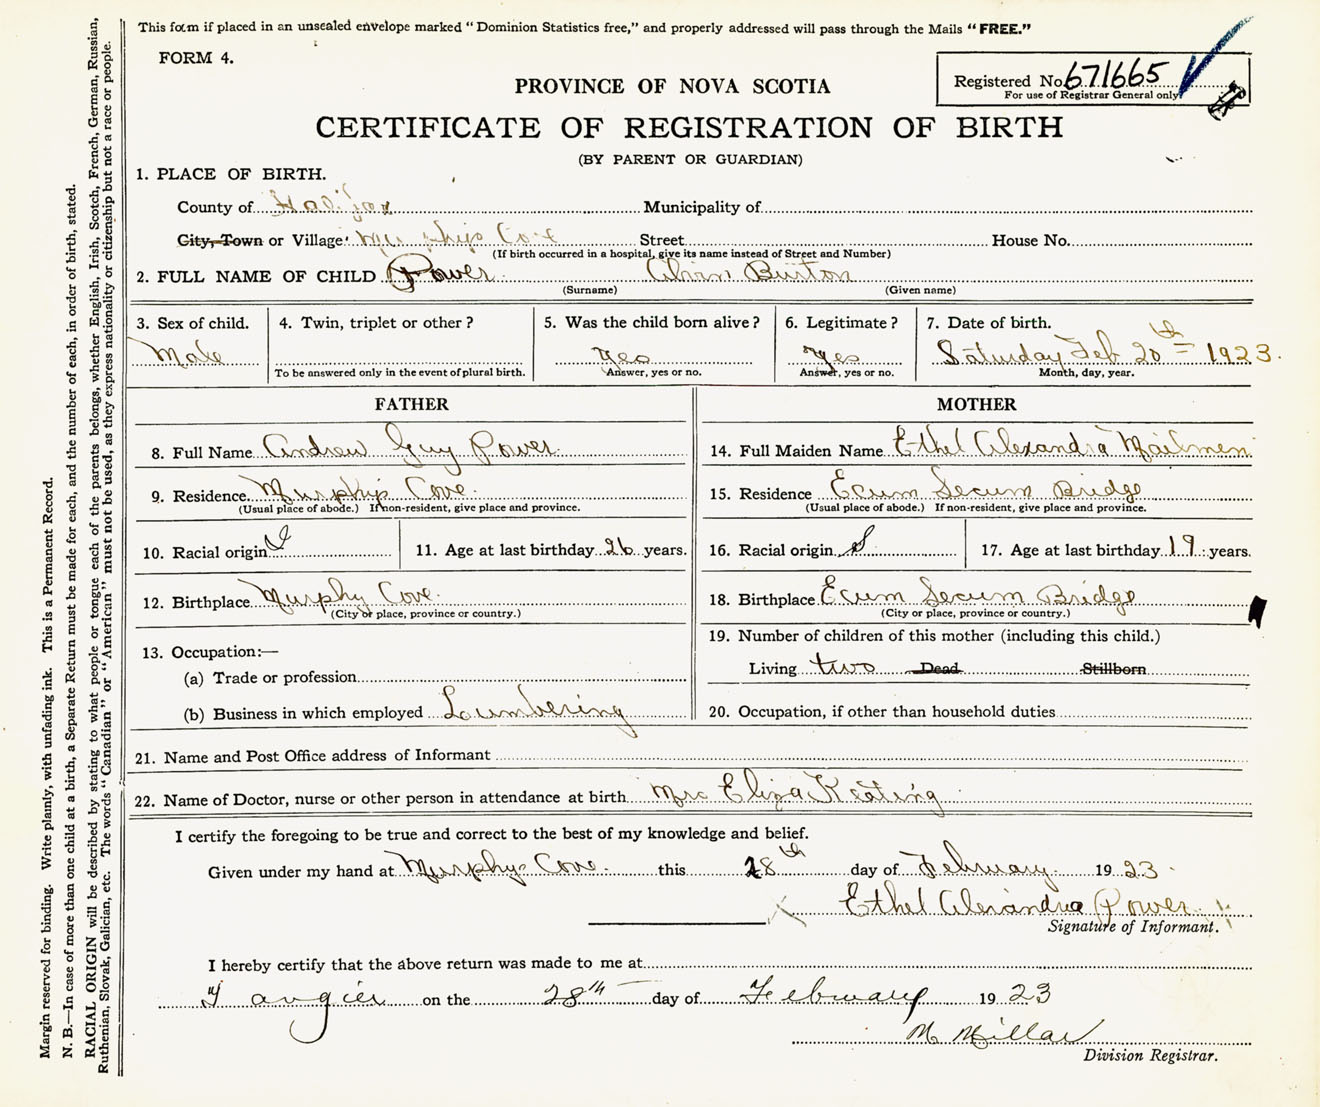 This form if placed in an unsealed envelope marked "Dominion Statistics free," and properly addressed will pass through the Mails "FREE."
FORM 4.
Registered No. 671665
For use of Registrar General only
PROVINCE OF NOVA SCOTIA
CERTIFICATE OF REGISTRATION OF BIRTH
(BY PARENT OR GUARDIAN)
1. PLACE OF BIRTH.
County of Halifax Municipality of
City, Town or Village Murphys Cove Street House No.
(If birth occurred in a hospital, give its name instead of Street and Number)
2. FULL NAME OF CHILD Power Burton
(Surname) (Given name)
3. Sex of child. 4. Twin, triplet or other? 5. Was the child born alive? 6. Legitimate? 7. Date of birth.
Male Yes Yes Saturday Feb 20th 1923.
To be answered only in the event of plural birth. Answer, yes or no. Answer, yes or no. Month, day, year.
FATHER MOTHER
8. Full Name Andrew Guy Power 14. Full Maiden Name Ethel Alexandra Mailmen
9. Residence Murphys Cove. 15. Residence Ecum Secum Bridge
(Usual place of abode.) If non-resident, give place and province. (Usual place of abode.) If non-resident, give place and province.
10. Racial origin I 11. Age at last birthday 26 years. 16. Racial origin S 17. Age at last birthday 19 years.
12. Birthplace Murphy Cove. 18. Birthplace Ecum Secum Bridge
(City or place, province or country.) (City or place, province or country.)
13. Occupation:— 19. Number of children of this mother (including this child.)
(a) Trade or profession Living two Dead Stillborn
(b) Business in which employed Lumbering 20. Occupation, if other than household duties
21. Name and Post Office address of Informant
22. Name of Doctor, nurse or other person in attendance at birth Mrs Eliza Keating
I certify the foregoing to be true and correct to the best of my knowledge and belief.
Given under my hand at Murphys Cove. this 28th day of February 1923.
Ethel Alexandra Power
Signature of Informant.
I hereby certify that the above return was made to me at
Tangier on the 28th day of February 1923
M Millar
Division Registrar.
Margin reserved for binding. Write plainly, with unfading ink. This is a Permanent Record.
N. B.—In case of more than one child at a birth, a Separate Return must be made for each, and the number of each, in order of birth, stated.
RACIAL ORIGIN will be described by stating to what people or tongue each of the parents belongs, whether English, Irish, Scotch, French, German, Russian,
Ruthenian, Slovak, Galician, etc. The words "Canadian" or "American" must not be used, as they express nationality or citizenship but not a race or people.